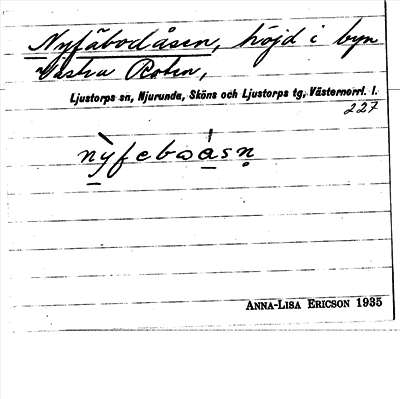 Nyfäbodåsen, höjd i byn
Västra Roten,
Ljustorps sn, Njurunda, Sköns och Ljustorps tg, Västernorrl. l.
227
nỳfebωásṇ
ANNA-LISA ERICSON 1935